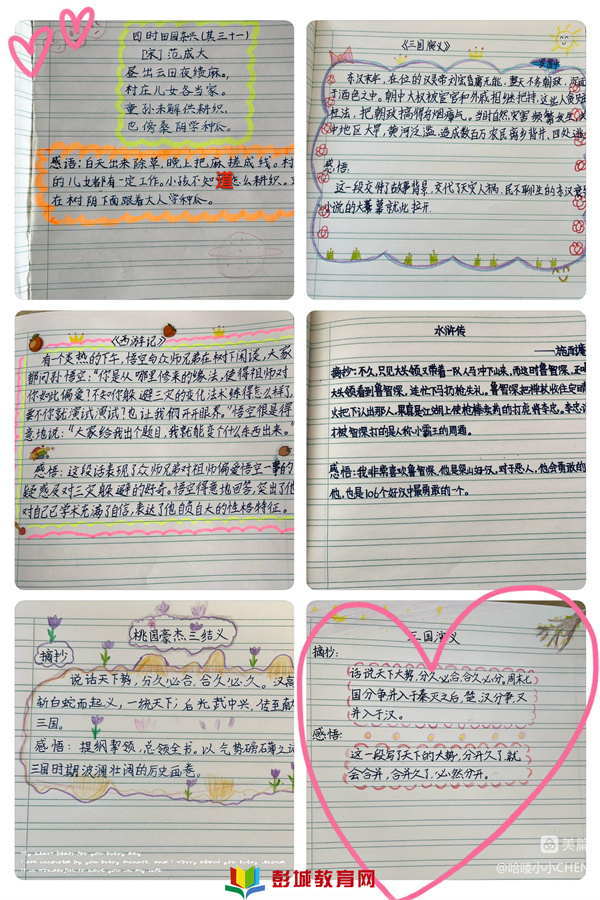 四时田园杂兴(其三十一)
[宋]范成大
昼出云田夜绩麻。
村庄儿女各当家。
童孙未解供耕织,
也傍桑阴学种瓜。
感悟:白天出来除草,晚上把麻搓成线。村
的儿女都有一定工作。小孩不知道怎么耕织,
在树阴下面跟着大人学种瓜。
《三国演义》
东汉末年,在位的汉灵帝刘宏昏庸无能,整天不务朝政,
于酒色之中。朝中大权被宦官和外戚相继把持,这些人贪
枉法,把朝政搞得乌烟瘴气。当时自然灾害频繁发生
地区大旱,黄河泛滥,造成数百万农民离乡背井,四处
感悟:
这一段交代了故事背景,交代了天灾人祸,民不聊生的东汉
小说的大幕就此拉开.
《西游记》
有个炎热的下午,悟空与众师兄弟在树下闲谈,大家
都问孙悟空:“你是从哪里修来的缘法,使得祖师对
你如此偏爱?不知你躲避三灾的变化法术练得怎么样了,
要不你就演试演试?也让我们开开眼界。”悟空很是得
意地说:“大家给我出个题目,我就能变个什么东西出来。”
感悟:这段话表现了众师兄弟对祖师偏爱悟空一事的
疑惑及对三灾躲避的好奇。悟空得意地回答,突出了他
对自己学术充满了自信,表达了他自负自大的性格特征。
水浒传
——施耐庵
摘抄:不久,只见大头领又带着一队人马冲下山来,而这时鲁智深,正
大头领看到鲁智深,连忙下马扔枪失礼。鲁智深把禅杖收住定睛
火把下认出那人,果真是江湖上使枪棒卖药的打虎将李忠。李忠
才被智深打的是人称小霸王的周通。
感悟:我非常喜欢鲁智深,他是梁山好汉。对于恶人,他会勇敢的
他,也是106个好汉中最勇敢的一个。
桃园豪杰三结义
摘抄
说话天下势,分久必合,合久必久。汉高
斩白蛇而起义,一统天下;后光武中兴,传至献
三国。
感悟:提纲挈领,总领全书。以气势磅礴之
三国时期波澜壮阔的历史画卷。
My heart beats for you every day.
I am inspired by you every minute, and I worry about you every second.
It is wonderful to have you in my life.
三国演义
摘抄:
话说天下大势,分久必合,合久必分,周末七
国分争并入于秦灭之后,楚、汉分争,又
并入于汉。
感悟:
这一段写了天下的大势,分开久了就
会合并,合并久了,必然分开。
美篇
@哈喽小小CHEN
彭城教育网